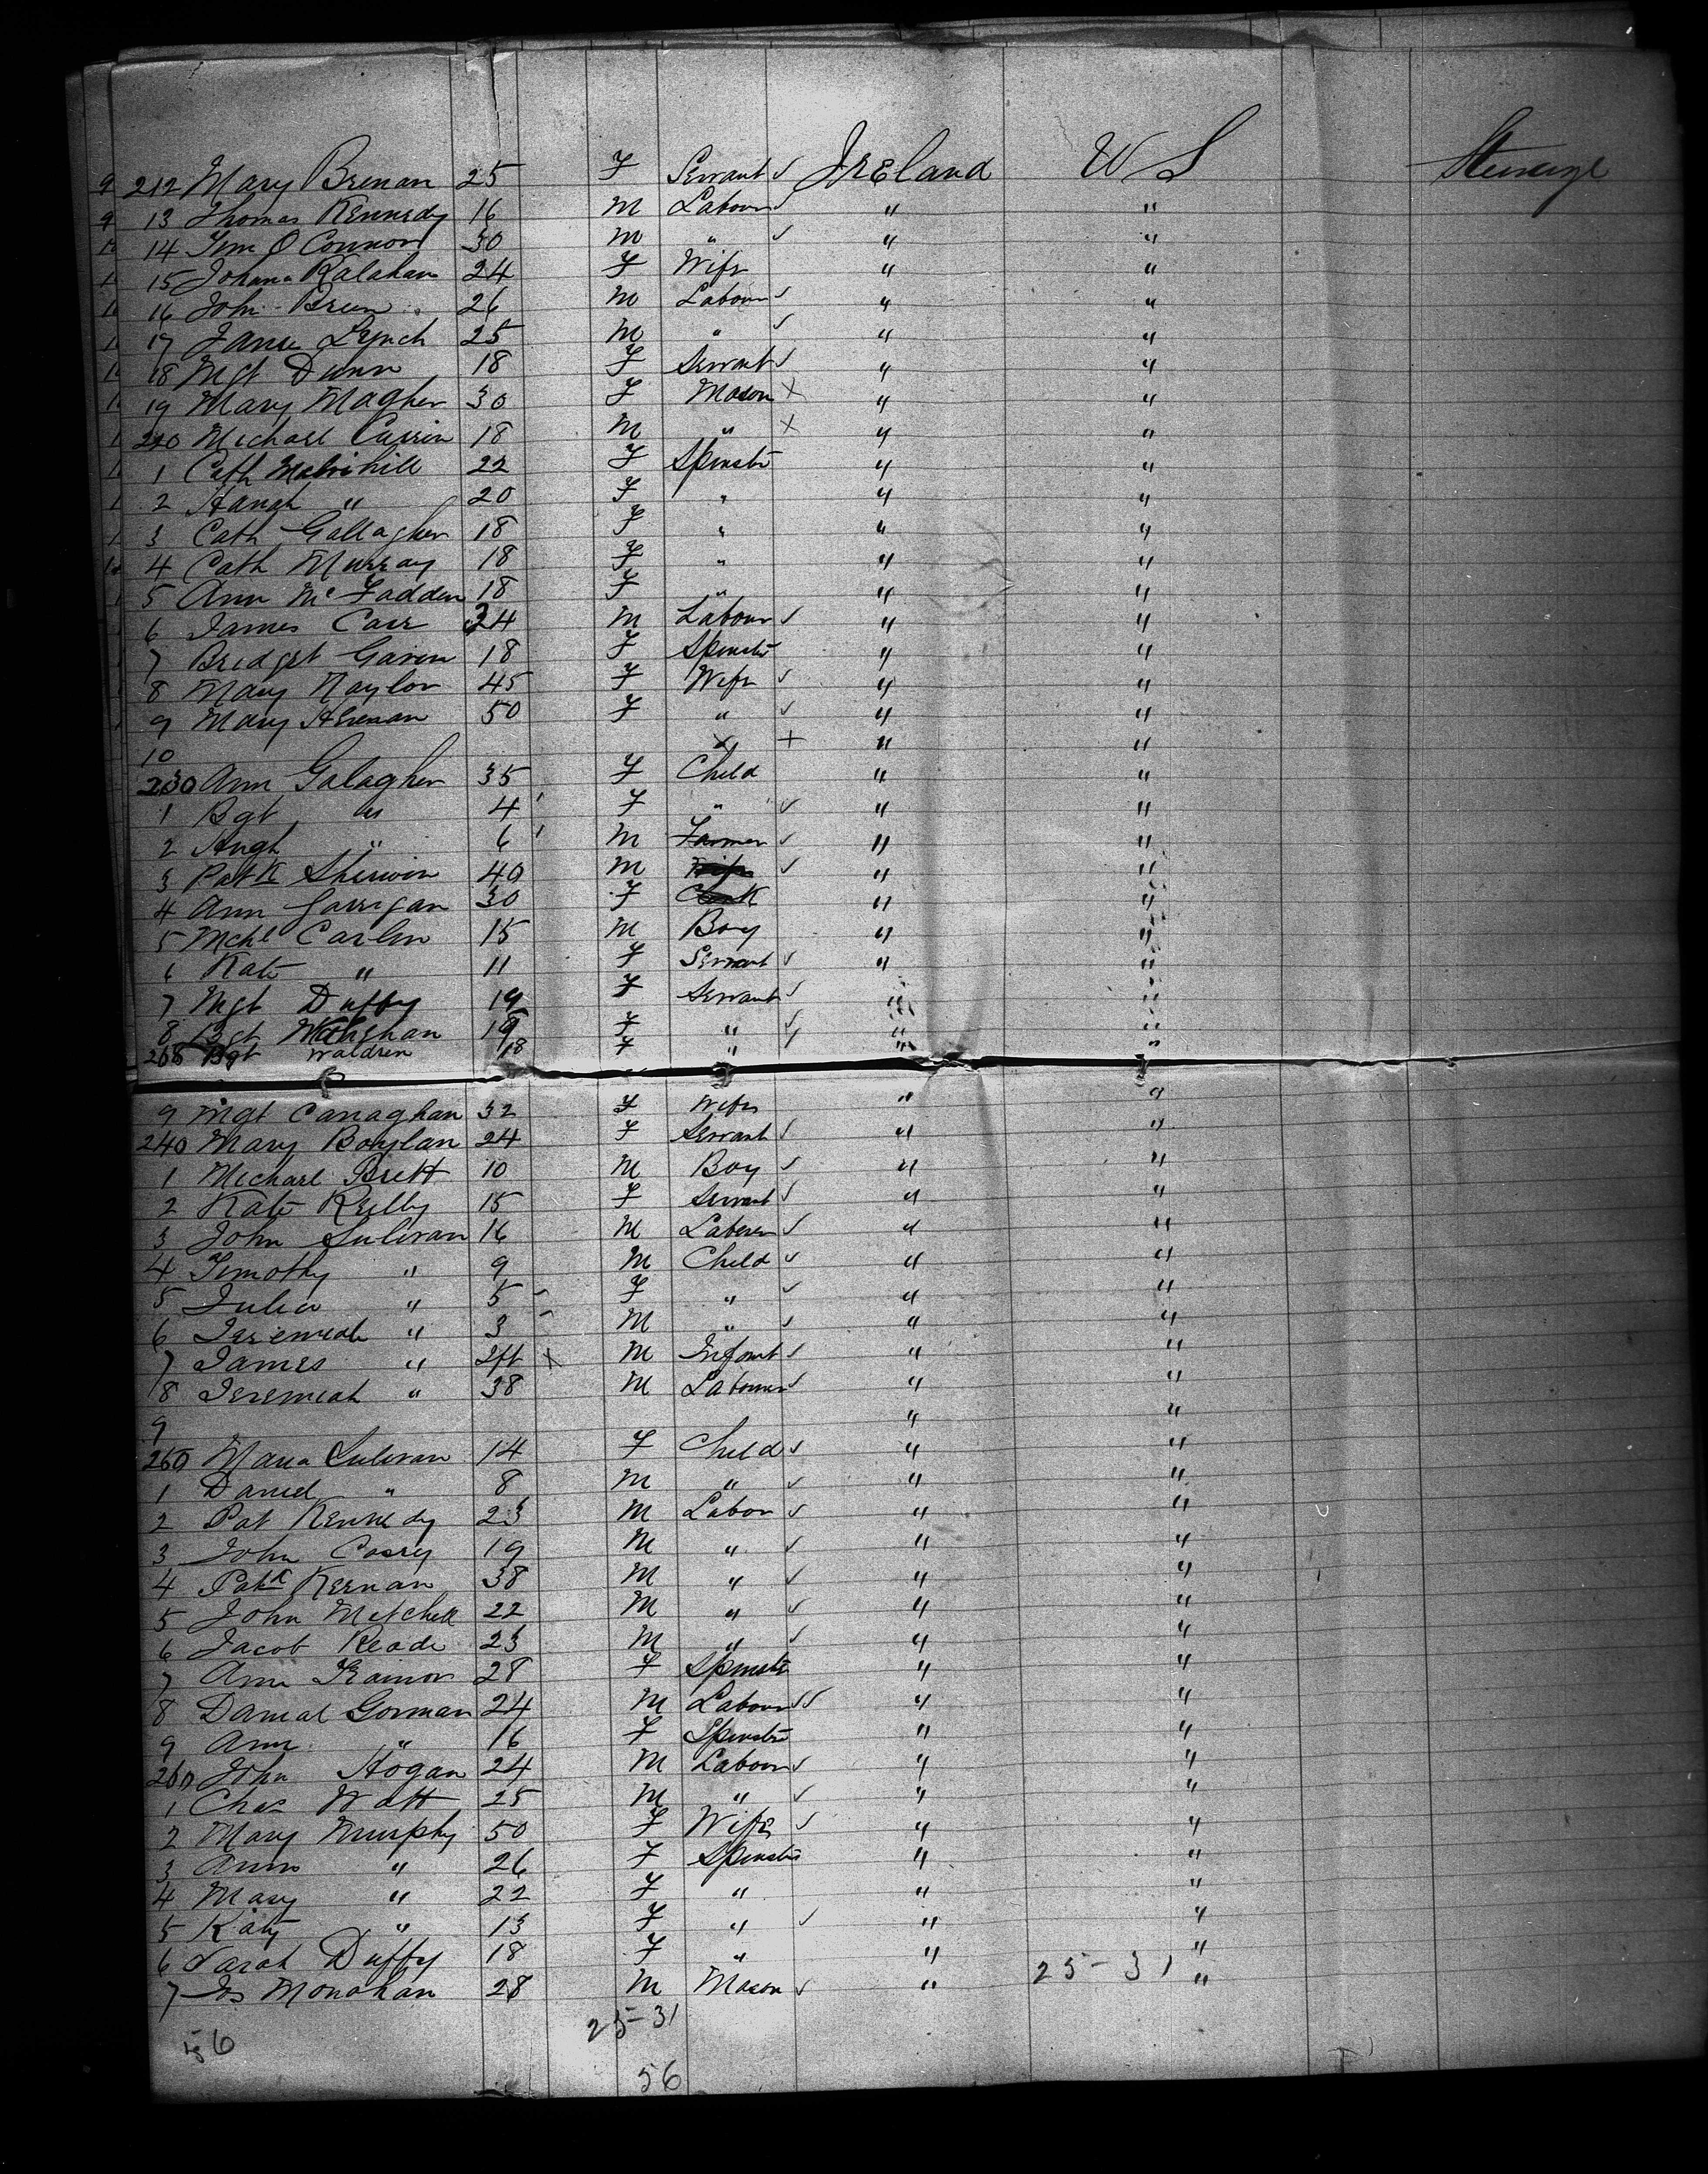 212 Mary Brenan 25 F Servant ✓ Ireland W S Steerage
13 Thomas Kennedy 16 M Labour ✓ " "
14 Tim O Connor 30 M " ✓ " "
15 Johana Kalahan 24 F Wife " "
16 John Breen 26 M Labour ✓ " "
17 James Lynch 25 M " ✓ " "
18 Mgt Dunn 18 F Servant ✓ " "
19 Mary Magher 30 F Mason x " "
220 Michael Currin 18 M " x " "
1 Cath Mulvihill 22 F Spinstr " "
2 Hanah " 20 F " " "
3 Cath Gallagher 18 F " " "
4 Cath Murray 18 F " " "
5 Ann McFadden 18 F " " "
6 James Carr 34 M Labour ✓ " "
7 Bridget Gaven 18 F Spinstr " "
8 Mary Naylor 45 F Wife ✓ " "
9 Mary Heenan 50 F " ✓ " "
10 x + " "
230 Ann Galagher 35 F Child " "
1 Bgt " 4 F " ✓ " "
2 Hugh " 6 M Farmer ✓ " "
3 Patk Sherwin 40 M Wife ✓ " "
4 Ann Garrigan 30 F " "
5 Mchl Carlin 15 M Boy " "
6 Kate " 11 F Servant ✓ " "
7 Mgt Duffy 19 F Servant ✓ " "
8 Bgt Monaghan F " ✓ " "
Bgt Waldren 18 F " " "
9 Mgt Canaghan 32 F Wife " "
240 Mary Boylan 24 F Servant ✓ " "
1 Michael Brett 10 M Boy ✓ " "
2 Kate Reilly 15 F Servant ✓ " "
3 John Sulivan 16 M Laberer ✓ " "
4 Timothy " 9 M Child ✓ " "
5 Julia " 5 F " ✓ " "
6 Jeremiah " 3 M " ✓ " "
7 James " Inft x M Infant ✓ " "
8 Jeremiah " 38 M Labourer ✓ " "
9 " "
260 Maria Sulivan 14 F Child ✓ " "
1 Daniel " 8 M " ✓ " "
2 Pat Kennedy 23 M Labor ✓ " "
3 John Casey 19 M " ✓ " "
4 Patk Kernan 38 M " ✓ " "
5 John Mitchell 22 M " ✓ " "
6 Jacob Reade 23 M " ✓ " "
7 Ann Trainor 28 F Spinstr " "
8 Danial Gorman 24 M Labour ✓✓ " "
9 Ann " 16 F Spinstr " "
260 John Hogan 24 M Labour ✓ " "
1 Chas Watt 25 M " ✓ " "
2 Mary Murphy 50 F Wife ✓ " "
3 Ann " 26 F Spinstr " "
4 Mary " 22 F " " "
5 Katy " 13 F " ✓ " "
6 Sarah Duffy 18 F " " "
7 Js Monahan 28 M Mason ✓ " 25-31 "
25-31
56
56